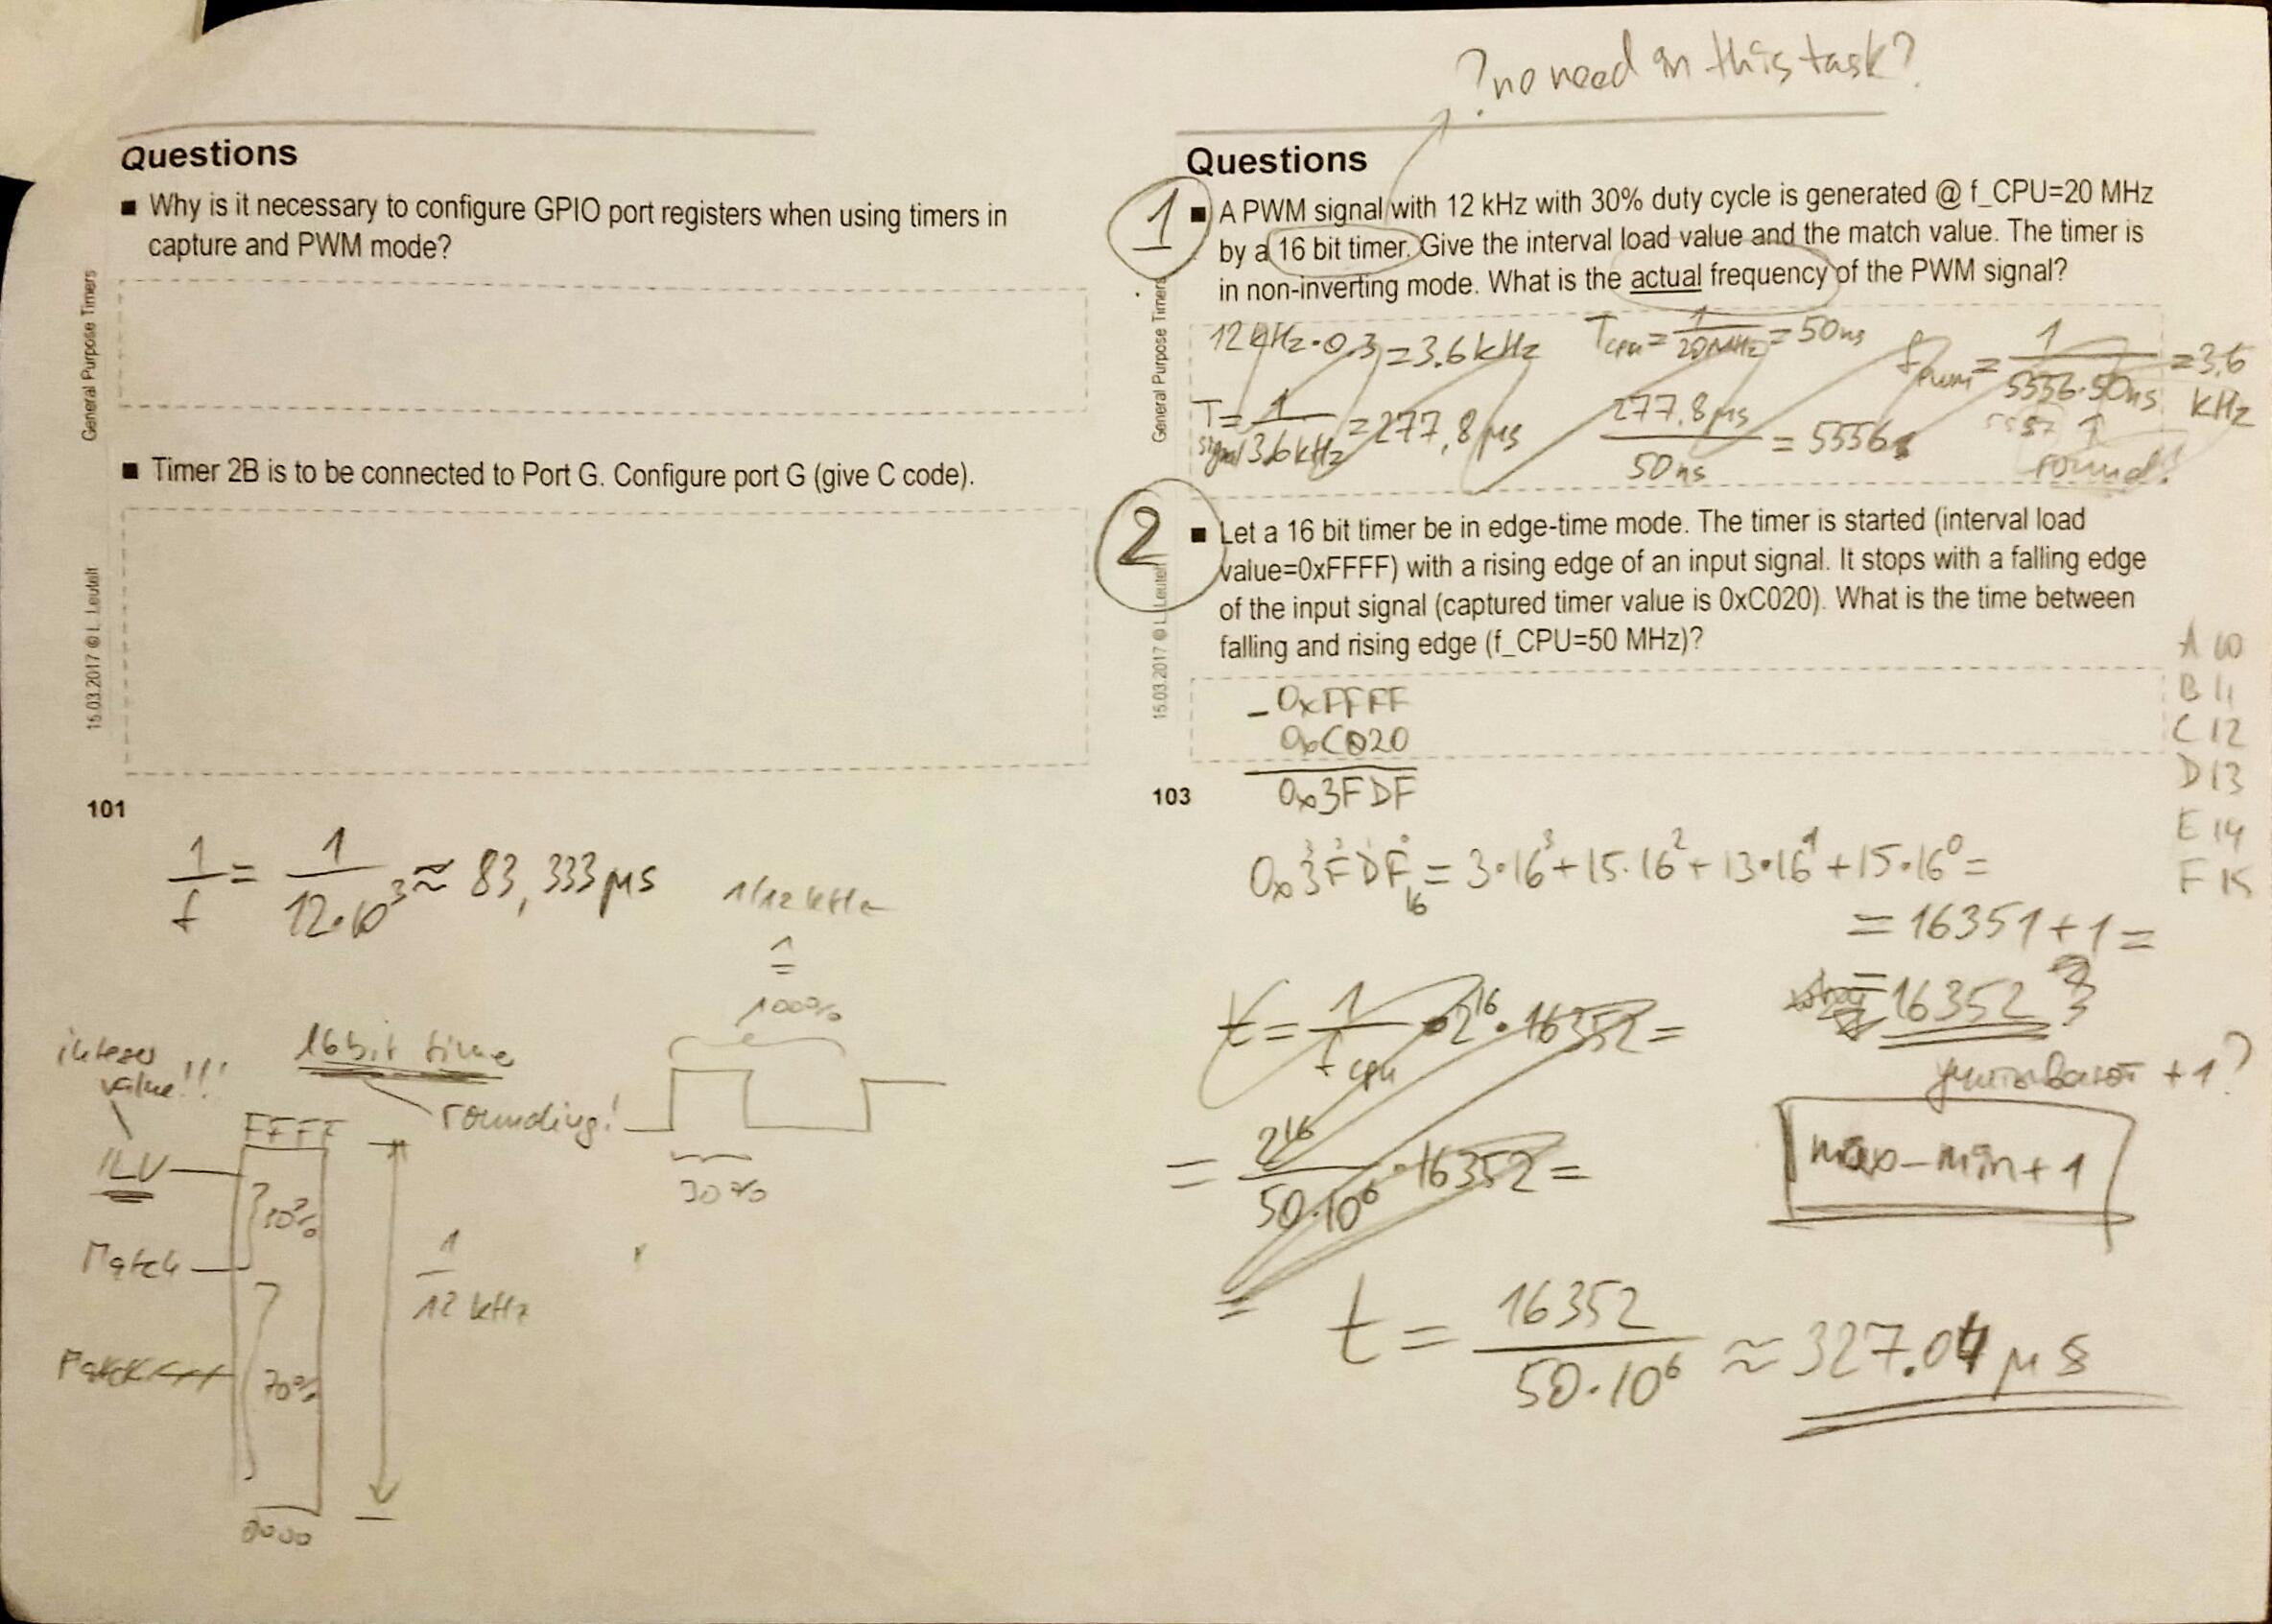 ?no need in this task?
Questions
■ Why is it necessary to configure GPIO port registers when using timers in
capture and PWM mode?
■ Timer 2B is to be connected to Port G. Configure port G (give C code).
General Purpose Timers
15.03.2017 © L. Leutelt
101
1/f = 1/12·10³ ≈ 83,333 µs
1/12 kHz
≙
100%
30%
integer
value!!!
16 bit time
rounding!
FFFF
ILV
30%
Match
1/12 kHz
70%
0000
Questions
1
■ A PWM signal with 12 kHz with 30% duty cycle is generated @ f_CPU=20 MHz
by a 16 bit timer. Give the interval load value and the match value. The timer is
in non-inverting mode. What is the actual frequency of the PWM signal?
12 kHz·0.3 = 3.6 kHz
T_cpu = 1/20MHz = 50ns
f_PWM = 1/5556·50ns = 3.6 kHz
T_signal = 1/3.6kHz = 277,8 µs
277.8 µs/50ns = 5556
round!
2
■ Let a 16 bit timer be in edge-time mode. The timer is started (interval load
value=0xFFFF) with a rising edge of an input signal. It stops with a falling edge
of the input signal (captured timer value is 0xC020). What is the time between
falling and rising edge (f_CPU=50 MHz)?
General Purpose Timers
15.03.2017 © L. Leutelt
103
- 0xFFFF
0xC020
0x3FDF
A 10
B 11
C 12
D 13
E 14
F 15
0x3FDF₁₆ = 3·16³+15·16²+13·16¹+15·16⁰=
= 16351+1=
= 16352
t = 1/f_cpu · 2¹⁶·16352 =
учитывают +1?
= 2¹⁶/50·10⁶ ·16352 =
max-min+1
=
t = 16352/50·10⁶ ≈ 327.04 µs